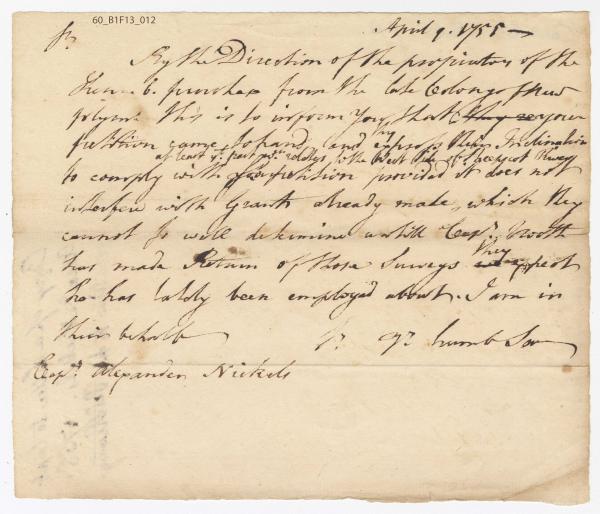 60_B1F13_012
Sr. April 9. 1755
By the Direction of the propriators of the
Kenne.c. purchas from the late Colony of New
plym.o this is to inform you, that they are your
petition came to hand, and they express their Inclination
at least yt part wch relates to the West Side of
to comply with petition provided it does not
interfere with Grants already made, which they
cannot so well determine untill Capt. North
has made Return of those Surveys they expect
he has lately been employed about. I am in
their behalf Sr. yr. humb Ser
Capt. Alexander Nickels